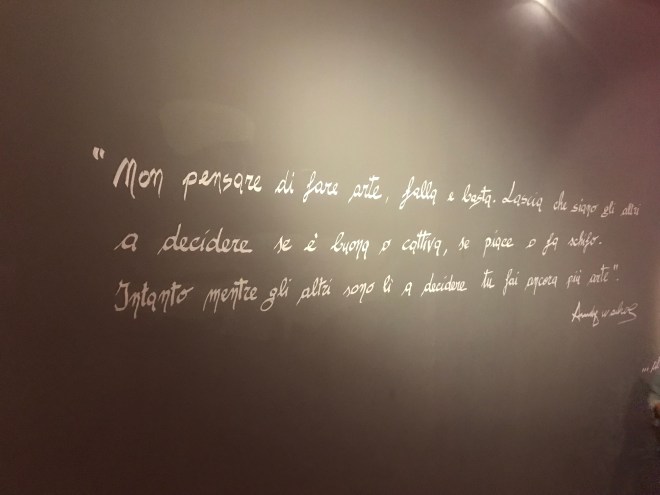 "Non pensare di fare arte, falla e basta. Lascia che siano gli altri
a decidere se è buona o cattiva, se piace o fa schifo.
Intanto mentre gli altri sono lì a decidere tu fai ancora più arte".
Andy Warhol